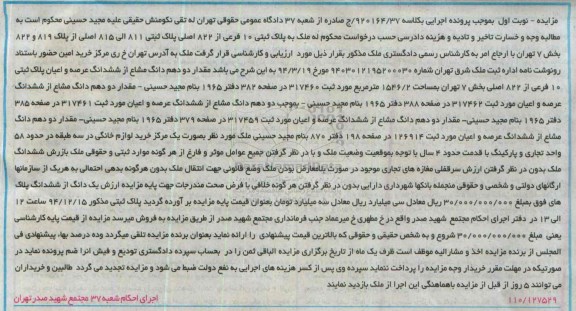 مزایده - نوبت اول بموجب پرونده اجرایی بکلاسه ۹۲۰۱۶۴/۳۷/ج صادره از شعبه ۳۷ دادگاه عمومی حقوقی تهران له تقی نکومنش حقیقی علیه مجید حسینی محکوم است به
مطالبه وجه و خسارت تاخیر و تادیه و هزینه دادرسی حسب درخواست محکوم له ملک به پلاک ثبتی ۱۰ فرعی از ۸۲۲ اصلی پلاک ثبتی ۸۱۱ الی ۸۱۵ اصلی از پلاک ۸۱۹ و ۸۲۲
بخش ۷ تهران با ارجاع امر به کارشناس رسمی دادگستری ملک مذکور بقرار ذیل مورد ارزیابی و کارشناسی قرار گرفت ملک به آدرس تهران خ ری مرکز خرید امین حضور باستناد
رونوشت نامه اداره ثبت ملک شرق تهران شماره ۹۴۰۳۰۱۲۱۹۵۲۰۰۰۳۰ مورخ ۹۴/۳/۱۹ به این شرح می باشد مقدار دو دهم دانگ مشاع از ششدانگ عرصه و اعیان پلاک ثبتی
۱۰ فرعی از ۸۲۲ اصلی بخش ۷ تهران بمساحت ۱۵۴۶/۲ مترمربع مورد ثبت ۳۱۷۴۶۰ صفحه ۳۸۲ دفتر ۱۹۶۵ بنام مجید حسینی - مقدار دو دهم دانگ مشاع از ششدانگ
عرصه و اعیان مورد ثبت ۳۱۷۴۶۲ صفحه ۳۸۸ دفتر ۱۹۶۵ بنام مجید حسینی - بموجب دو دهم دانگ مشاع از ششدانگ عرصه و اعیان مورد ثبت ۳۱۷۴۶۱ صفحه ۳۸۵
دفتر ۱۹۶۵ بنام مجید حسینی- مقدار دو دهم دانگ مشاع از ششدانگ عرصه و اعیان مورد ثبت ۳۱۷۴۵۹ صفحه ۳۷۹ دفتر ۱۹۶۵ بنام مجید حسینی- مقدار دو دهم دانگ
مشاع از ششدانگ عرصه و اعیان مورد ثبت ۱۲۶۹۱۴ صفحه ۱۹۸ دفتر ۸۷۰ بنام مجید حسینی ملک مورد نظر بصورت یک مرکز خرید لوازم خانگی در سه طبقه در حدود ۵۸
واحد تجاری و پارکینگ با قدمت حدود ۴ سال با توجه بموقعیت وضعیت ملک و با در نظر گرفتن جمیع عوامل موثر و فارغ از هر گونه موارد ثبتی و حقوقی ملک بارزش ششدانگ
ملک بدون در نظر گرفتن ارزش سرقفلی مغازه های تجاری موجود در صورت بلامعارض بودن ملک وضع قانونی جهت انتقال ملک بدون هرگونه بدهی احتمالی به هریک از سازمانها
ارگانهای دولتی و شخصی و حقوقی منجمله بانکها شهرداری دارایی بدون در نظر گرفتن هر گونه خلافی با فرض صحت مندرجات جهت پایه مزایده ارزش یک دانگ از ششدانگ پلاک
های فوق بمبلغ ۳۰/۰۰۰/۰۰۰/۰۰۰ ریال معادل سی میلیارد ریال معادل سه میلیارد تومان بعنوان قیمت پایه مزایده بر آورده گردید پلاک ثبتی مذکور ۹۴/۱۲/۱۵ ساعت ۱۲
الی ۱۳ در دفتر اجرای احکام مجتمع شهید صدر واقع در خ مطهری خ میرعماد جنب فرمانداری مجتمع شهید صدر از طریق مزایده به فروش میرسد مزایده از قیمت پایه کارشناسی
یعنی مبلغ ۳۰/۰۰۰/۰۰۰/۰۰۰ شروع و به شخص حقیقی و حقوقی که بالاترین قیمت پیشنهادی را ارائه نماید بعنوان برنده مزایده تلقی میگردد وده درصد بها، پیشنهادی فی
المجلس از برنده مزایده اخذ و مشارالیه موظف است ظرف یک ماه از تاریخ برگزاری مزایده الباقی ثمن را در بحساب سپرده دادگستری تودیع و فیش انرا ضم پرونده نماید در
صورتیکه در مهلت مقرر خریدار وجه مزایده را پرداخت ننماید سپرده وی پس از کسر هزینه های اجرایی به نفع دولت ضبط می شود و مزایده تجدید می گردد طالبین و خریداران
می توانند ۵ روز از قبل از مزایده باهماهنگی این اجرا از ملک بازدید نمایند
۱۱۰/۱۲۷۵۲۹ اجرای احکام شعبه ۳۷ مجتمع شهید صدر تهران